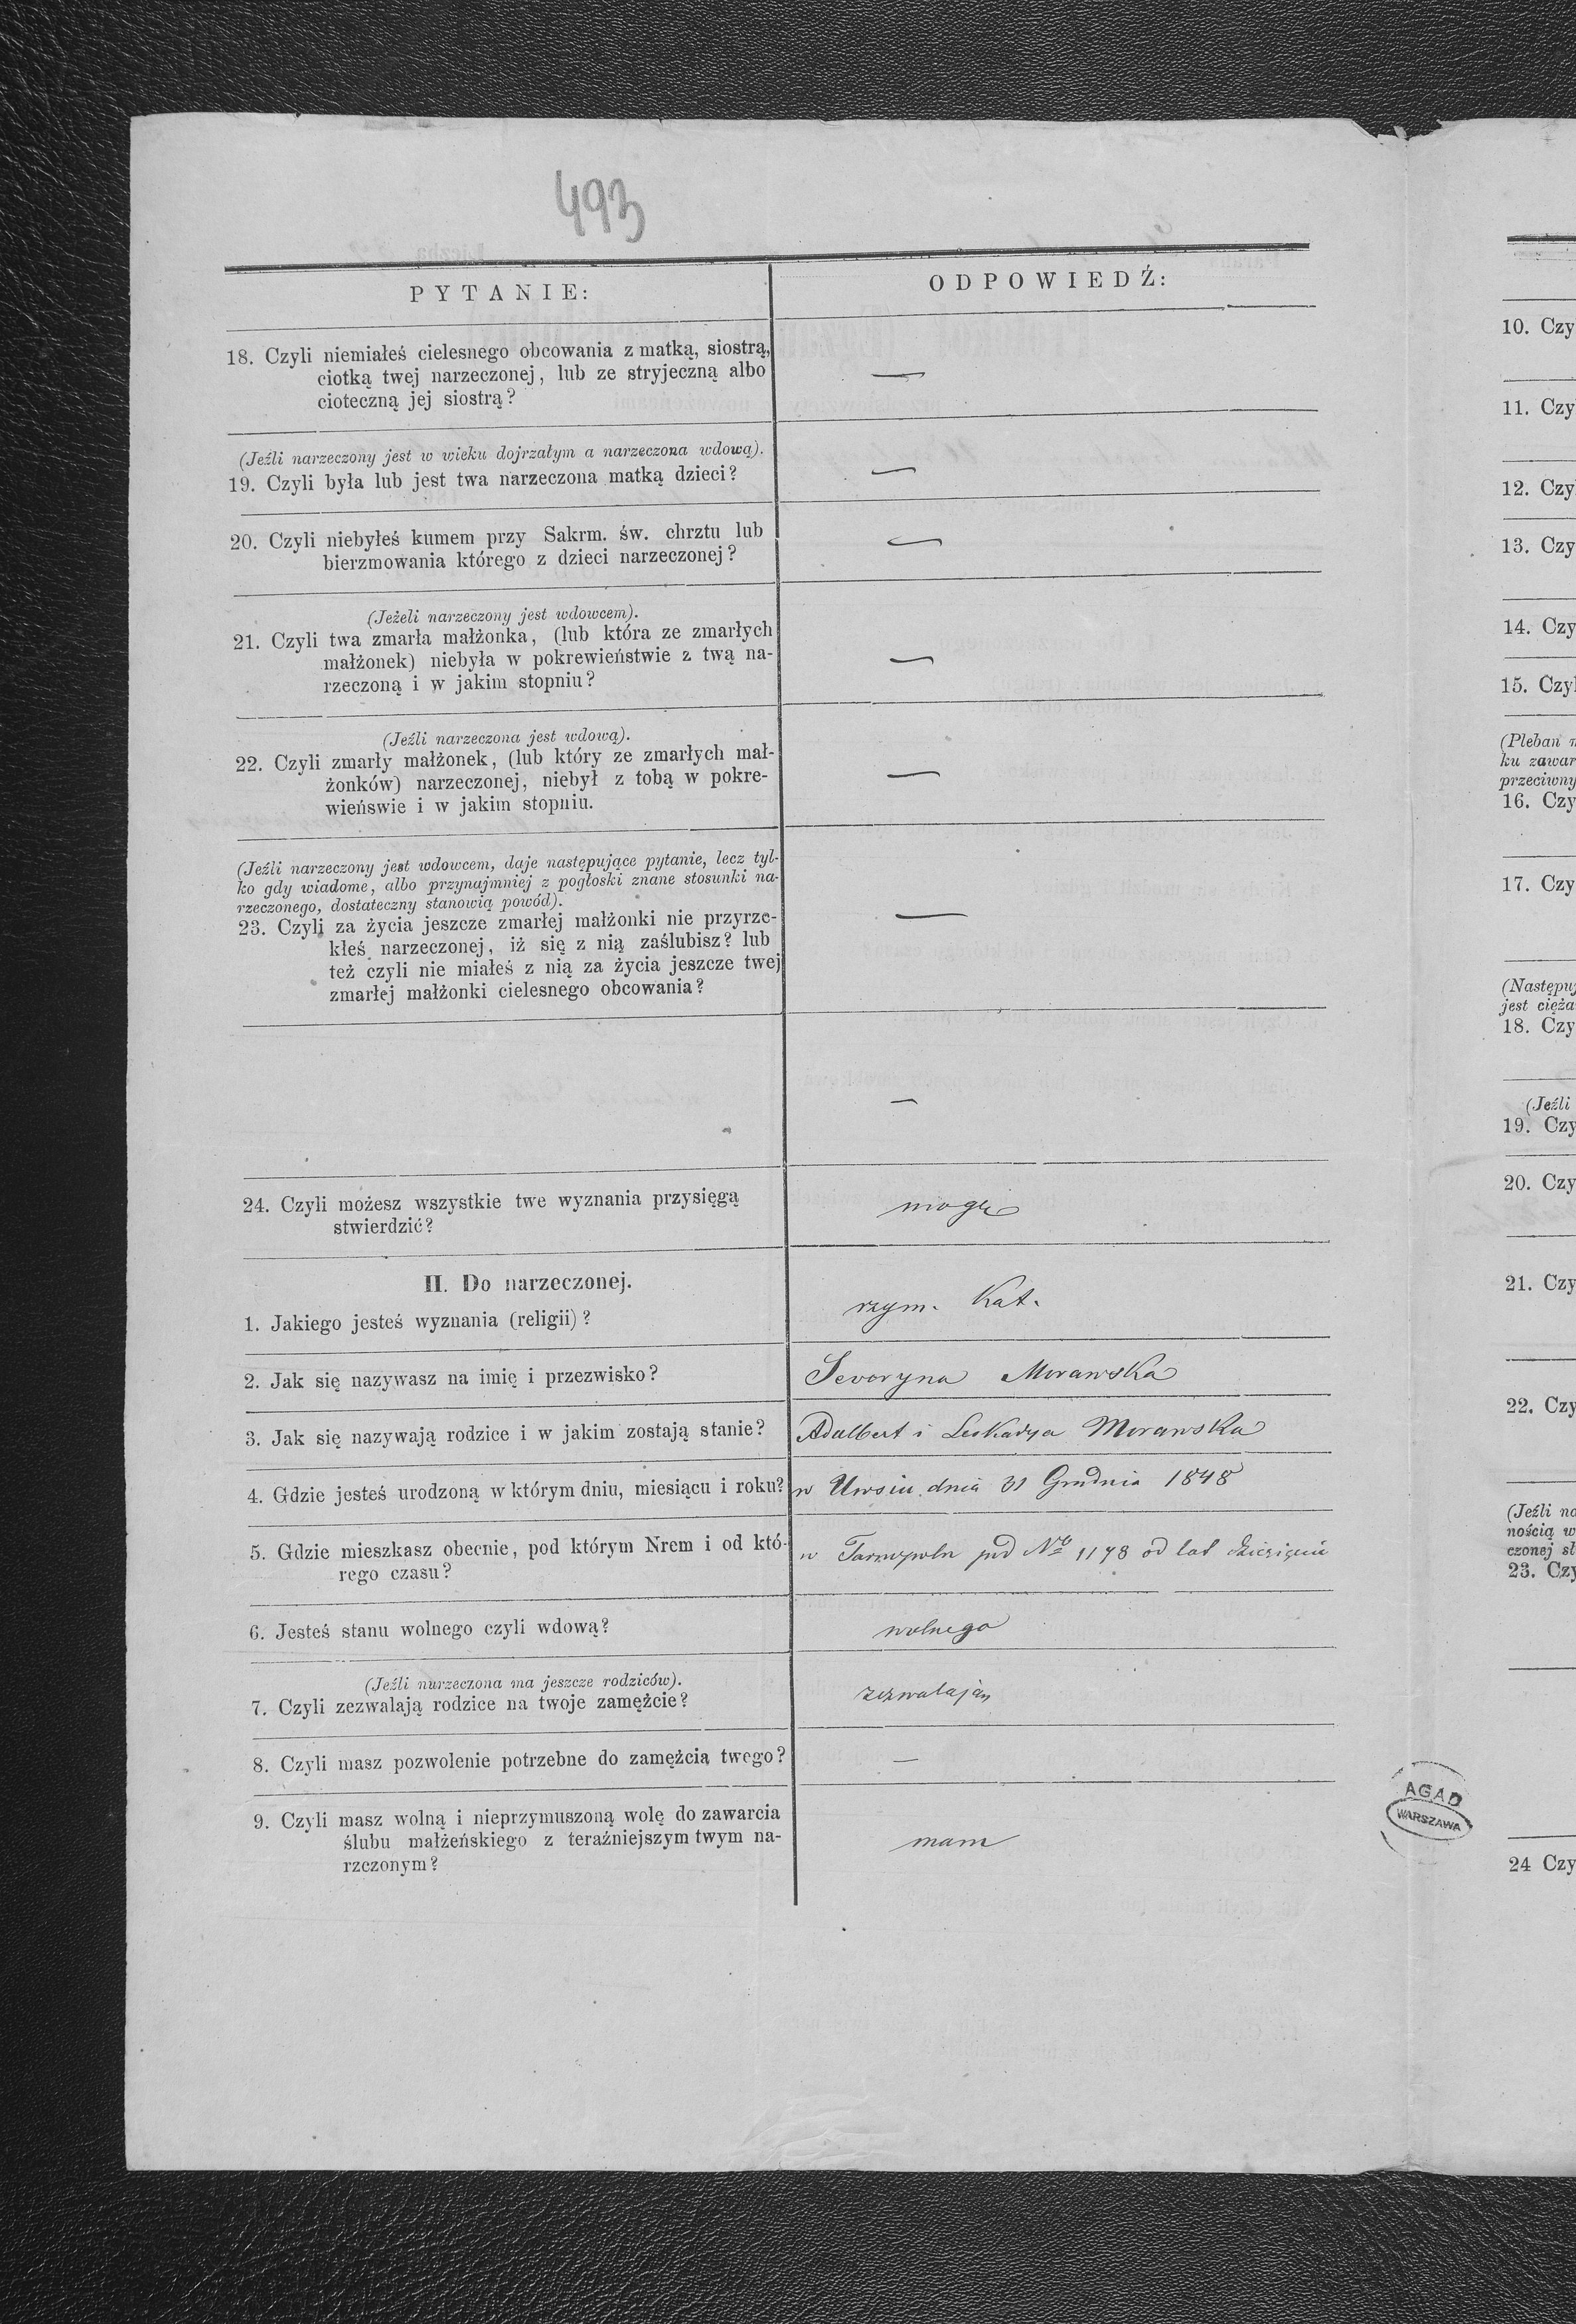 493
PYTANIE:
ODPOWIEDŹ:
18. Czyli niemiałeś cielesnego obcowania z matką, siostrą,
ciotką twej narzeczonej, lub ze stryjeczną albo
cioteczną jej siostrą?
—
(Jeźli narzeczony jest w wieku dojrzałym a narzeczona wdową).
19. Czyli była lub jest twa narzeczona matką dzieci?
—
20. Czyli niebyłeś kumem przy Sakrm. św. chrztu lub
bierzmowania którego z dzieci narzeczonej?
—
(Jeżeli narzeczony jest wdowcem).
21. Czyli twa zmarła małżonka, (lub która ze zmarłych
małżonek) niebyła w pokrewieństwie z twą na-
rzeczoną i w jakim stopniu?
—
(Jeźli narzeczona jest wdową).
22. Czyli zmarły małżonek, (lub który ze zmarłych mał-
żonków) narzeczonej, niebył z tobą w pokre-
wieńswie i w jakim stopniu.
—
(Jeźli narzeczony jest wdowcem, daje następujące pytanie, lecz tyl-
ko gdy wiadome, albo przynajmniej z pogłoski znane stosunki na-
rzeczonego, dostateczny stanowią powód).
23. Czyli za życia jeszcze zmarłej małżonki nie przyrze-
kłeś narzeczonej, iż się z nią zaślubisz? lub
też czyli nie miałeś z nią za życia jeszcze twej
zmarłej małżonki cielesnego obcowania?
—
—
24. Czyli możesz wszystkie twe wyznania przysięgą
stwierdzić?
mogę
II. Do narzeczonej.
1. Jakiego jesteś wyznania (religii)?
rzym. Kat.
2. Jak się nazywasz na imię i przezwisko?
Seweryna Morawska
3. Jak się nazywają rodzice i w jakim zostają stanie?
Adalbert i Leokadya Morawska
4. Gdzie jesteś urodzoną w którym dniu, miesiącu i roku?
w Uwsiu dnia 31 Grudnia 1848
5. Gdzie mieszkasz obecnie, pod którym Nrem i od któ-
rego czasu?
w Tarnopolu pod No 1178 od lat dziesięciu
6. Jesteś stanu wolnego czyli wdową?
wolnego
(Jeźli narzeczona ma jeszcze rodziców).
7. Czyli zezwalają rodzice na twoje zamężcie?
zezwalają
8. Czyli masz pozwolenie potrzebne do zamężcia twego?
—
9. Czyli masz wolną i nieprzymuszoną wolę do zawarcia
ślubu małżeńskiego z teraźniejszym twym na-
rzczonym?
mam
AGAD
WARSZAWA
10. Czy
11. Czy
12. Czy
13. Czy
14. Czy
15. Czyl
(Pleban
ku zawar
przeciwny
16. Czy
17. Czy
(Następuj
jest cięża
18. Czy
(Jeźli
19. Czy
20. Czy
21. Czy
22. Czy
(Jeźli na
nością w
czonej sł
23. Czy
24 Czy